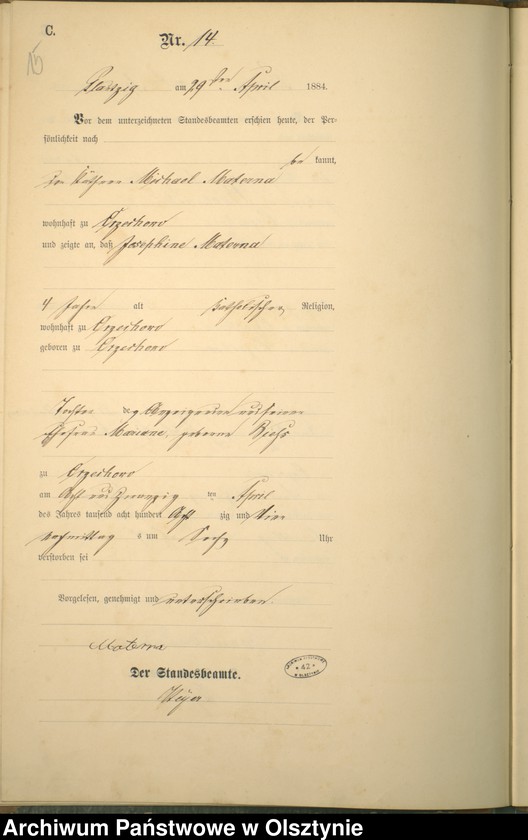 C.
Nr. 14.
15
am 29ten April 1884.
Vor dem unterzeichneten Standesbeamten erschien heute, der Per-
sönlichkeit nach
be kannt,
Michael Materna
wohnhaft zu Orzechowo
und zeigte an, daß Josephine Materna
4 Jahre alt katholischer Religion,
wohnhaft zu Orzechowo
geboren zu Orzechowo
Tochter des Anzeigenden und seiner
Ehefrau Marianne, geborene
zu Orzechowo
am Acht und zwanzig ten April
des Jahres tausend acht hundert Acht zig und Vier
Vormittag s um Sechs Uhr
verstorben sei
Vorgelesen, genehmigt und unterschrieben.
Materna
Der Standesbeamte.
42
Archiwum Państwowe w Olsztynie